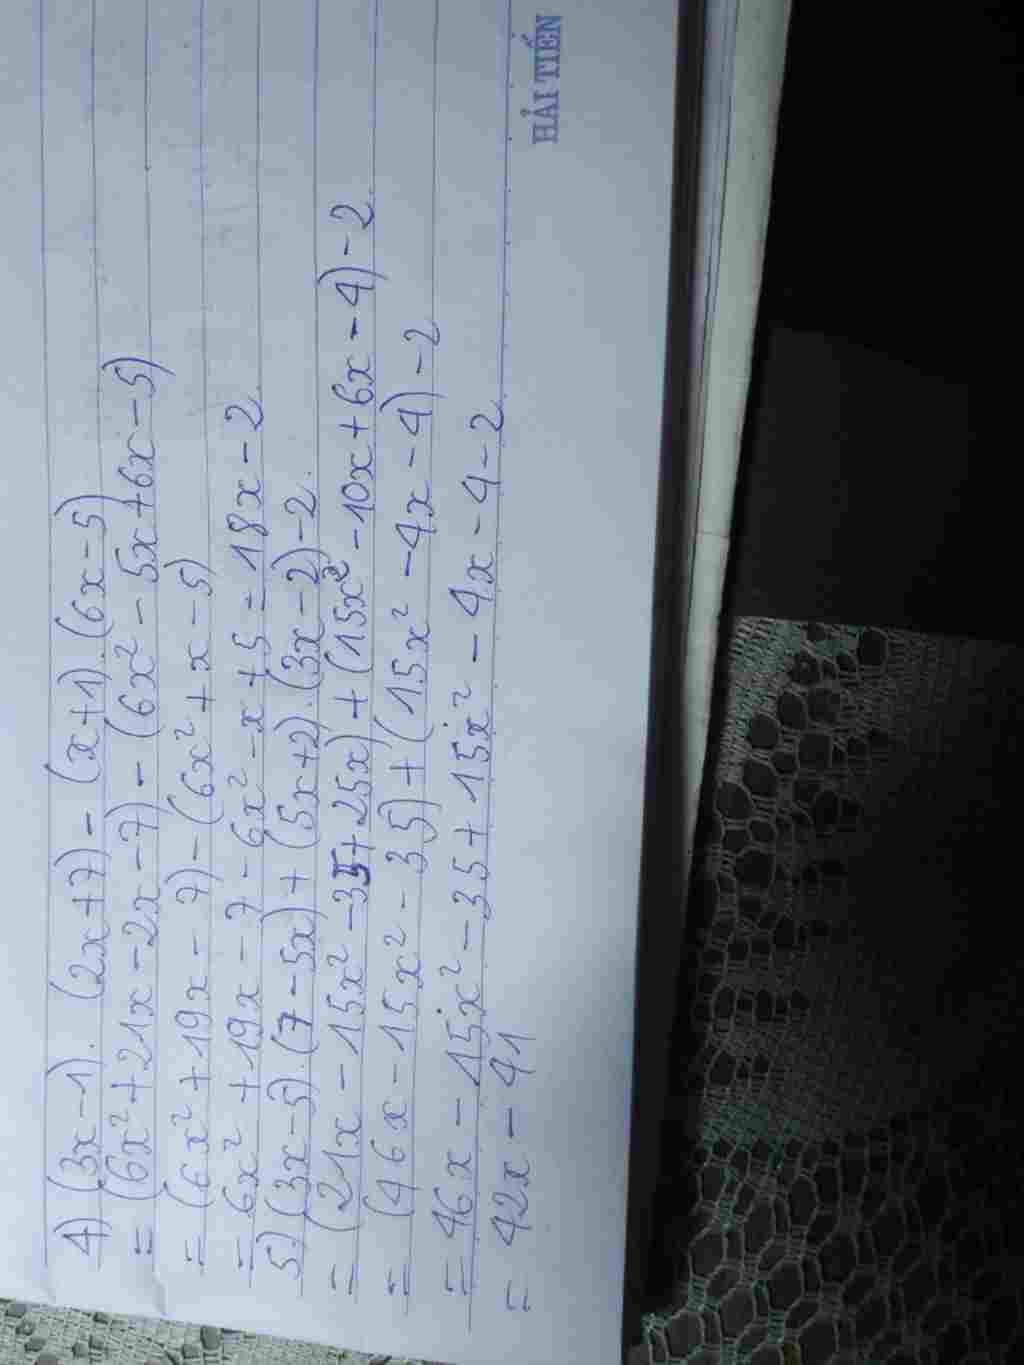 4) (3x-1). (2x+7) - (x+1).(6x-5)
= (6x² + 21x - 2x - 7) - (6x² - 5x + 6x - 5)
= (6x² + 19x - 7) - (6x² + x - 5)
= 6x² + 19x - 7 - 6x² - x + 5 = 18x - 2.
5) (3x-5).(7-5x) + (5x+2).(3x-2) - 2.
= (21x - 15x² - 35 + 25x) + (15x² - 10x + 6x - 4) - 2.
= (46x - 15x² - 35) + (15x² - 4x - 4) - 2
= 46x - 15x² - 35 + 15x² - 4x - 4 - 2
= 42x - 41
HẢI TIẾN